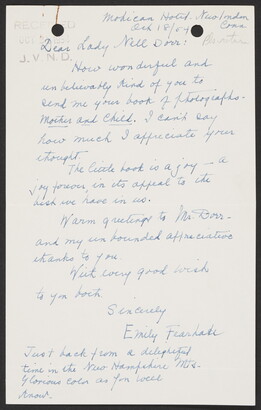 Mohican Hotel. New London
Oct 18/54 Conn
RECEIVED
J.V.N.D.
Dear Lady Nell Dorr!
How wonderful and
unbelievably kind of you to
send me your book of photographs-
Mother and Child. I can't say
how much I appreciate your
thought.
The little book is a joy — a
joy forever, in its appeal to the
best we have in us.
Warm greetings to Mr. Dorr-
and my unbounded appreciative
thanks to you.
With every good wish
to you both
Sincerely
Emily
Just back from a delightful
time in the New Hampshire Mts.
Glorious color as you well
know.